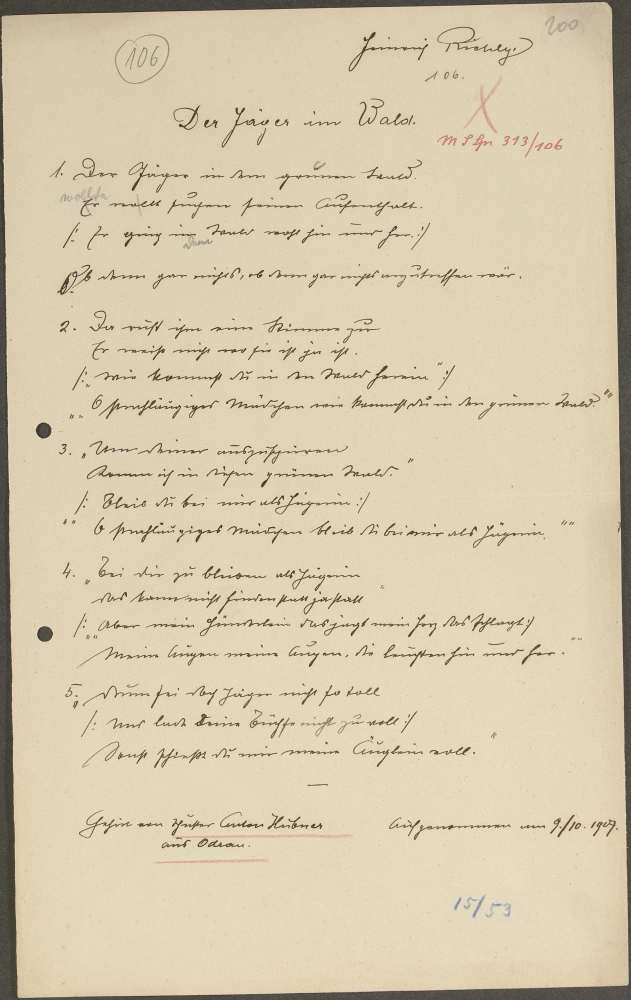 200
106
Heinrich
106.
Der Jäger im Wald.
M S Gn 313/106
1. Der Jäger in dem grünen Wald.
wollte
Er wollt suchen seinen Aufenthalt.
/: Er ging im Wald wohl hin und her. :/
dem
Ob denn gar nichts, ob denn gar nichts anzutreffen wär.
2. Da ruft ihm eine Stimme zu
Er weiß nicht wo sie ist ja ist.
/: „Wie kommst du in den Wald herein" :/
„„O strahläugiges Mädchen wie kommst du in den grünen Wald.""
3. „Um deiner auszuspüren
Komm ich in diesen grünen Wald."
/: Bleib du bei mir als Jägerin :/
"" O strahläugiges Mädchen bleib du bei mir als Jägerin. ""
4. „Bei dir zu bleiben als Jägerin
das kann nicht finden statt ja statt
/: „„Aber mein Hündelein das jagt mein Herz das schlagt :/
Meine Augen meine Augen, die leuchten hin und her. ""
5. „Drum sei doch Jäger nicht so toll
/: Und lade Deine Büchse nicht zu voll :/
Sonst schießt du mir meine Äuglein voll. "
Gehört von Anton Hübner
aus Odrau.
Aufgenommen am 9./10. 1907.
15/53